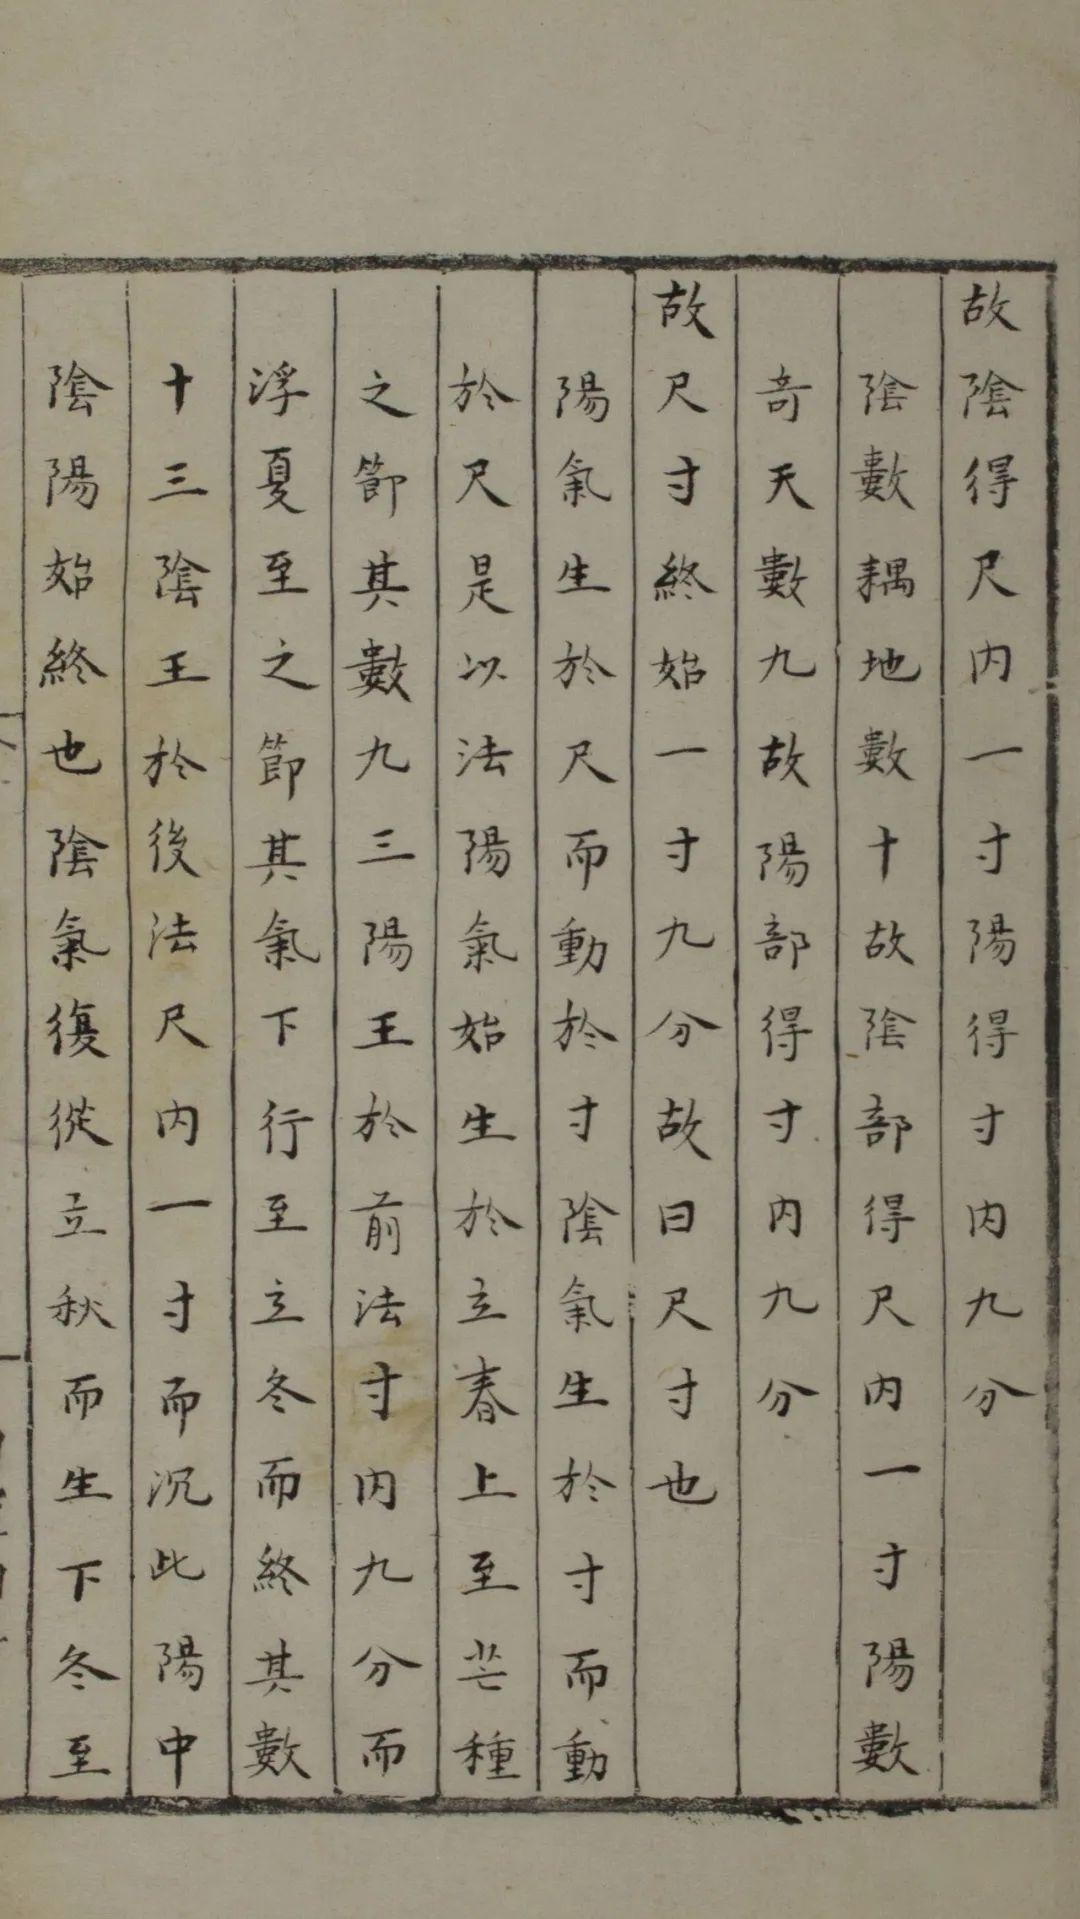 故陰得尺内一寸陽得寸内九分
陰數耦地數十故陰部得尺内一寸陽數
奇天數九故陽部得寸内九分
故尺寸終始一寸九分故曰尺寸也
陽氣生於尺而動於寸陰氣生於寸而動
於尺是以法陽氣始生於立春上至芒種
之節其數九三陽王於前法寸内九分而
浮夏至之節其氣下行至立冬而終其數
十三陰王於後法尺内一寸而沉此陽中
陰陽始終也陰氣復從立秋而生下冬至